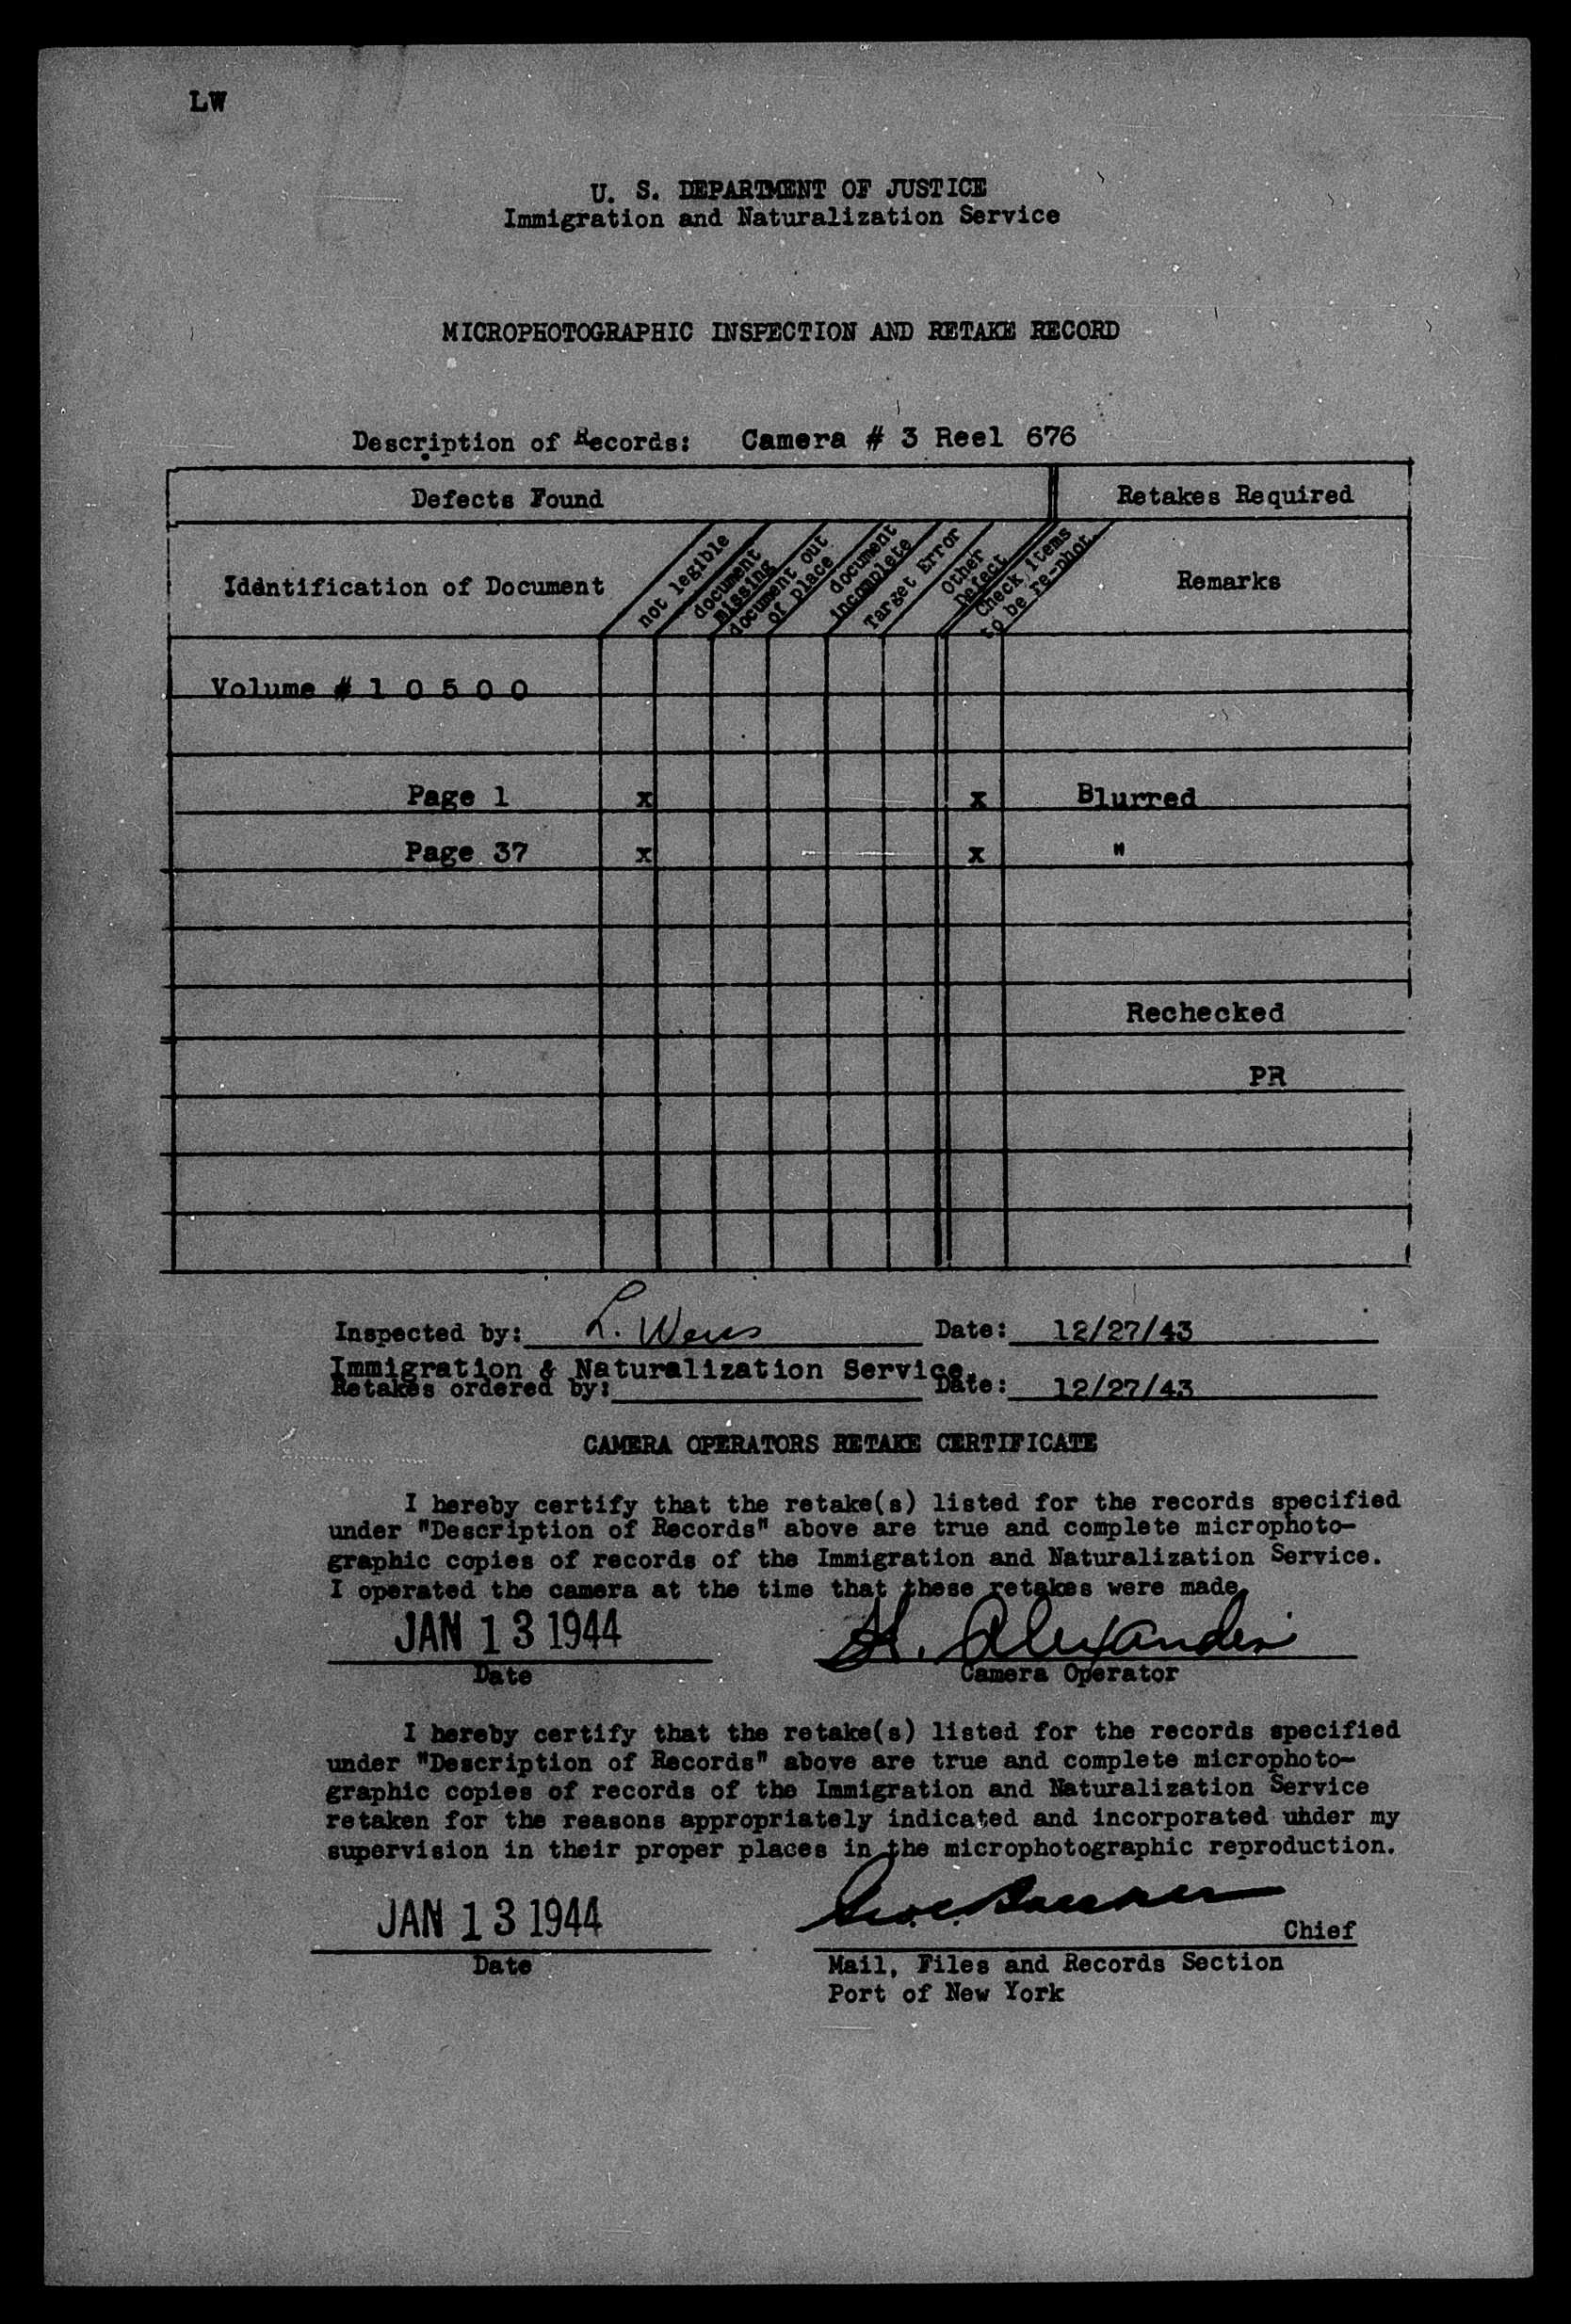 LW
U. S. DEPARTMENT OF JUSTICE
Immigration and Naturalization Service
MICROPHOTOGRAPHIC INSPECTION AND RETAKE RECORD
Description of Records: Camera # 3 Reel 676
Defects Found
Retakes Required
Identification of Document
not legible
document missing
document out of place
document incomplete
Target Error
Other Defect
Check items to be re-phot.
Remarks
Volume # 1 0 5 0 0
Page 1 x x Blurred
Page 37 x x "
Rechecked
PR
Inspected by: L. Weiss Date: 12/27/43
Immigration & Naturalization Service.
Retakes ordered by: Date: 12/27/43
CAMERA OPERATORS RETAKE CERTIFICATE
I hereby certify that the retake(s) listed for the records specified
under "Description of Records" above are true and complete microphoto-
graphic copies of records of the Immigration and Naturalization Service.
I operated the camera at the time that these retakes were made.
JAN 13 1944 H. Alexander
Date Camera Operator
I hereby certify that the retake(s) listed for the records specified
under "Description of Records" above are true and complete microphoto-
graphic copies of records of the Immigration and Naturalization Service
retaken for the reasons appropriately indicated and incorporated uhder my
supervision in their proper places in the microphotographic reproduction.
JAN 13 1944
Chief
Date Mail, Files and Records Section
Port of New York